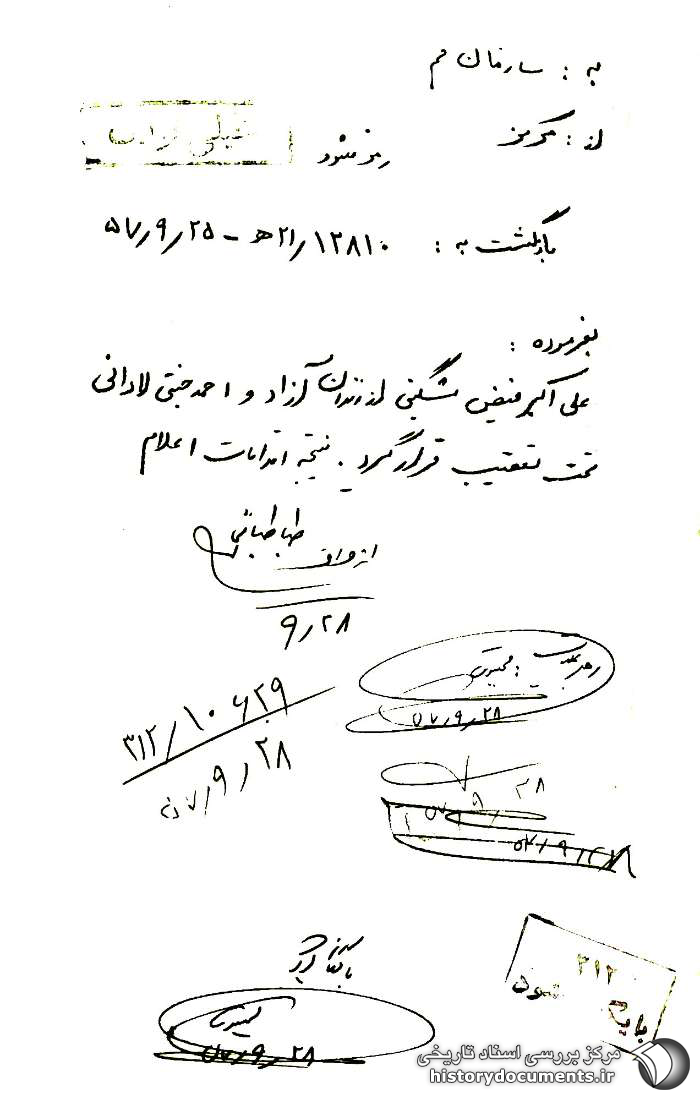 به : سازمان قم
از : مرکز
رمز شود
خیلی فوری
بازگشت به : ۲۱/۱۲۸۱۰ﻫ - ۵۷/۹/۲۵
بفرموده :
علی اکبر فیض مشگینی از زندان آزاد و احمد جنتی لادانی
تحت تعقیب قرار گیرد. نتیجه اقدامات اعلام
طباطبائی
از طرف
۹/۲۸
رهبر عملیات : محمدی
۵۷/۹/۲۸
۳۱۲/۱۰۶۲۹
۵۷/۹/۲۸
۵۷/۹/۲۸
۵۷/۹/۲۸
بایگانی
۵۷/۹/۲۸
۳۱۲
بایگانی شود
مرکز بررسی اسناد تاریخی
historydocuments.ir